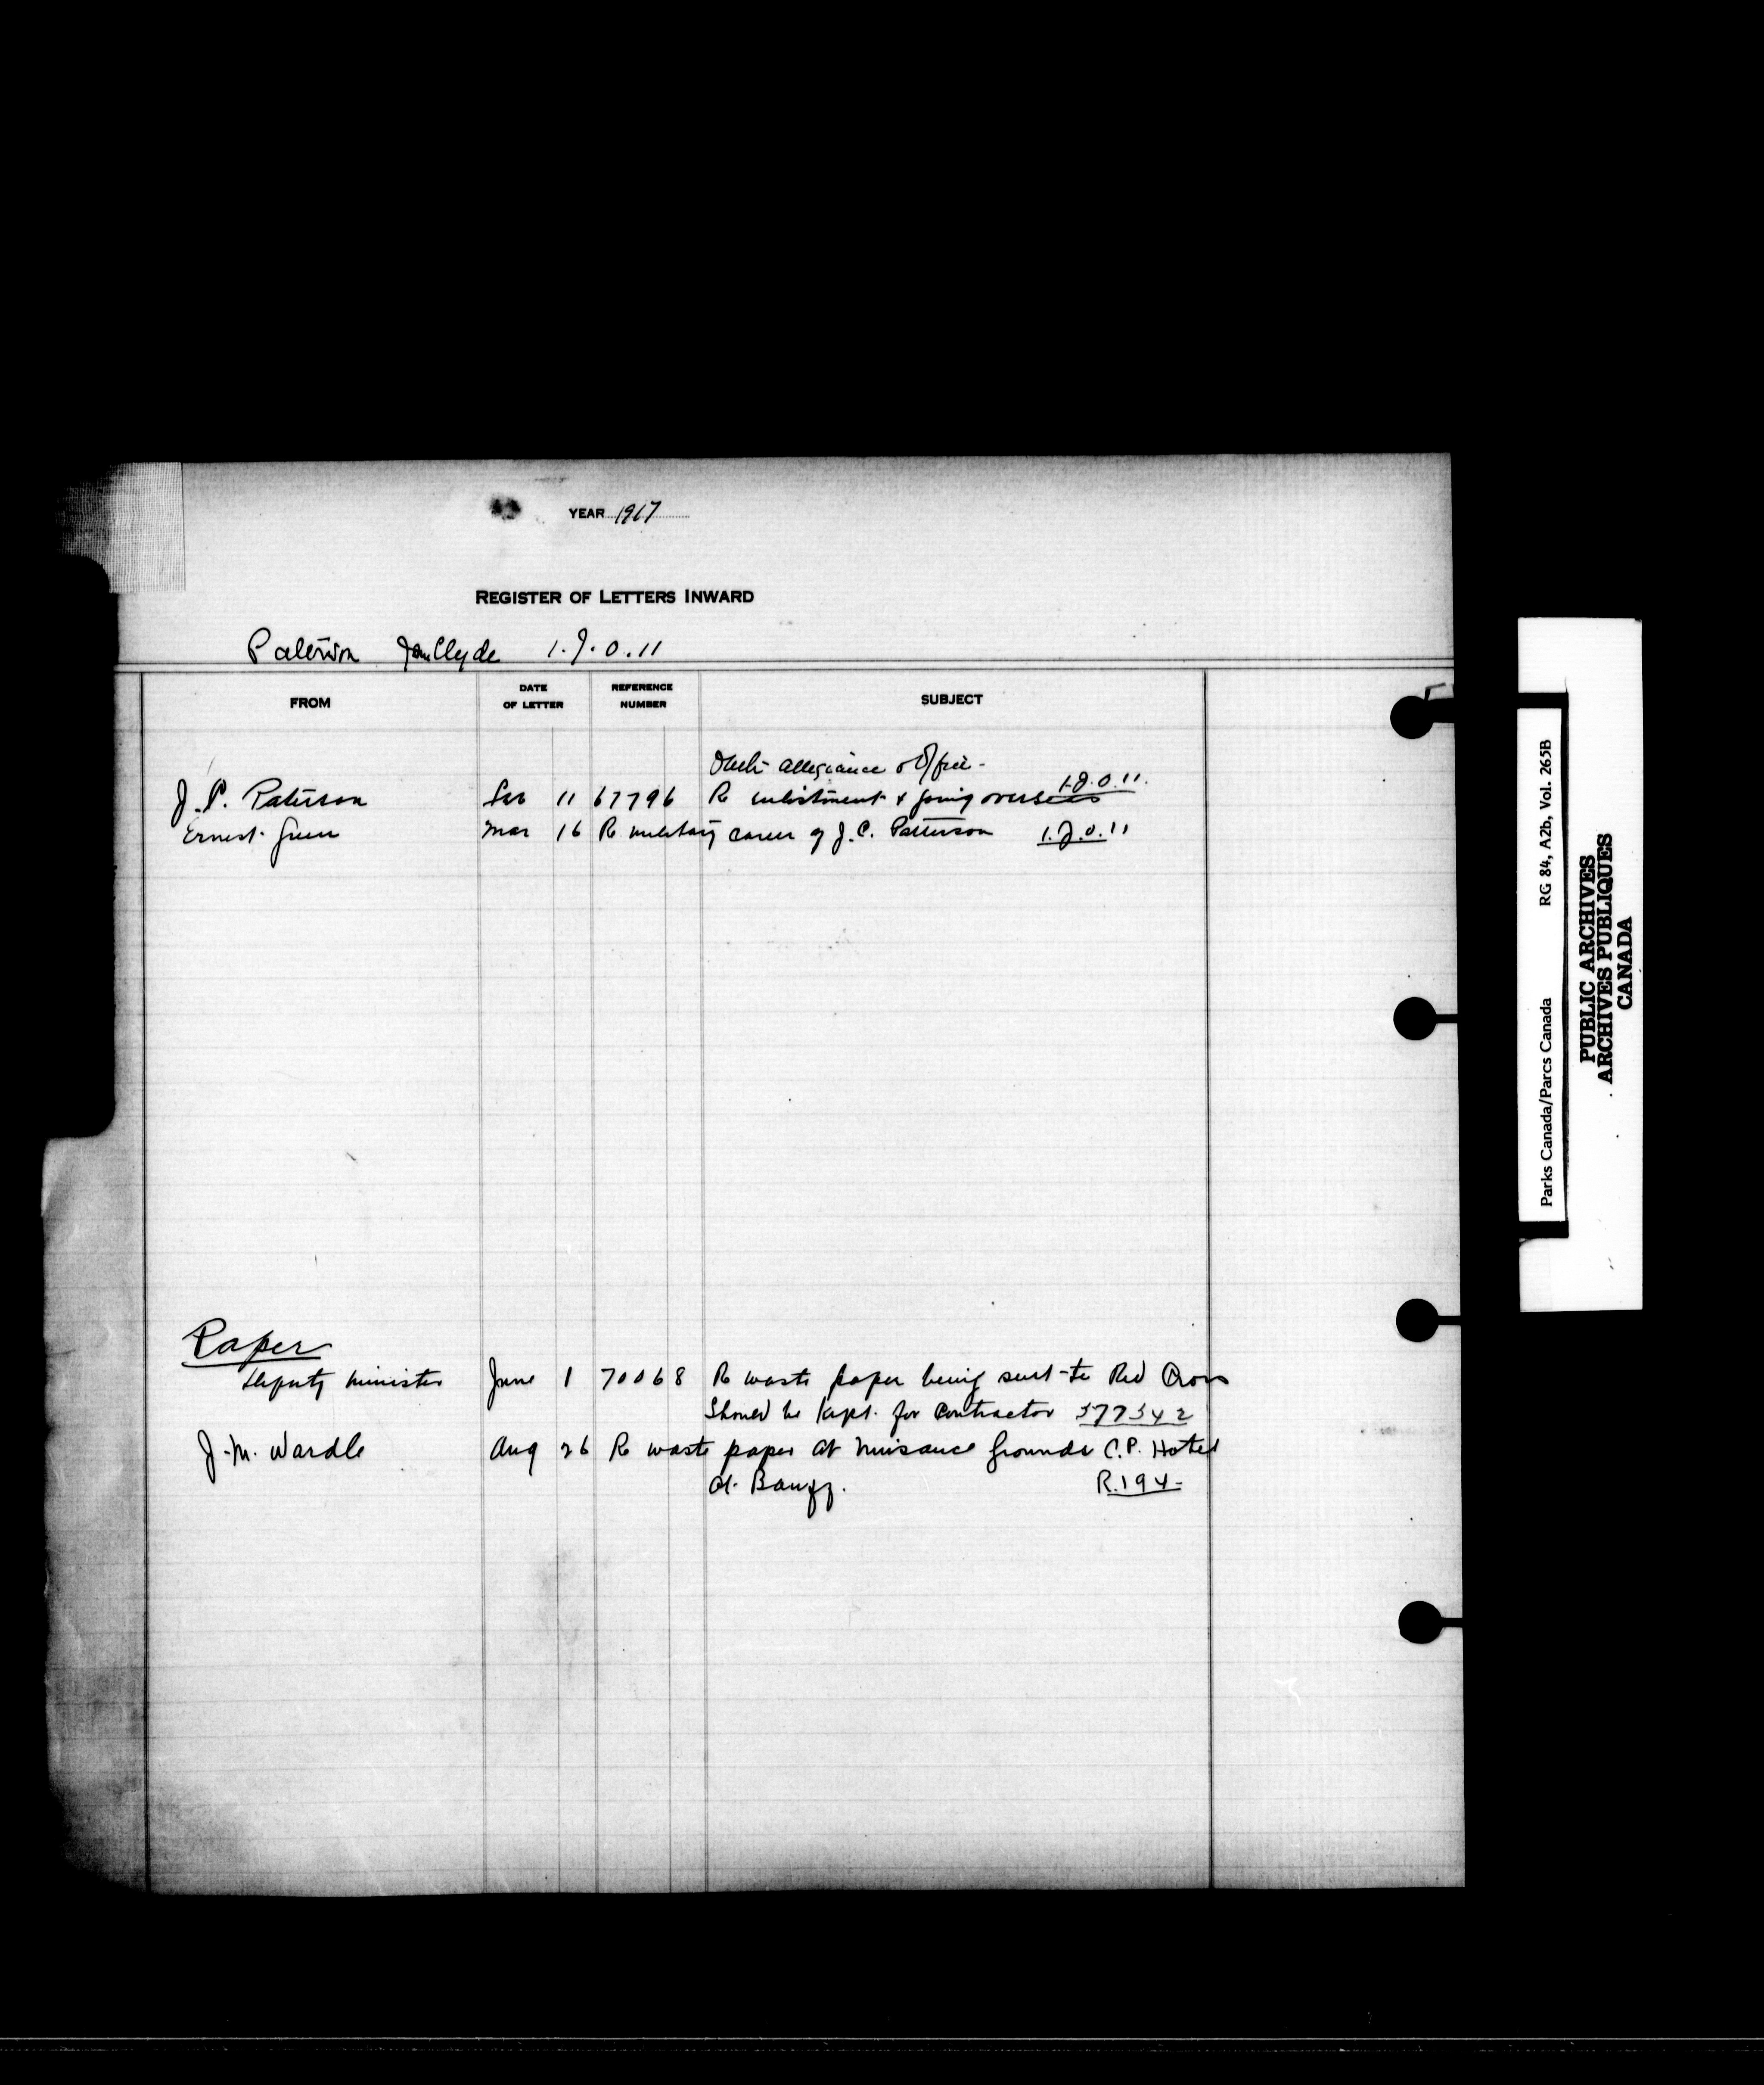 YEAR 1917
REGISTER OF LETTERS INWARD
Paterson Clyde 1.J.0.11
FROM
DATE OF LETTER
REFERENCE NUMBER
SUBJECT
Oath allegiance & Office-
J. P. Paterson 11 67796 Re enlistment & going overseas 1.J.0.11.
Ernest Green Mar 16 Re military career of J. C. Patterson 1.J.0.11
Paper
Deputy Minister June 1 70068 Re waste paper being sent to Red Cross
Should be kept for contractor 377342
J. M. Wardle Aug 26 Re waste paper at nuisance grounds C.P. Hotel
at Banff. R.194-
Parks Canada/Parcs Canada RG 84, A2b, Vol. 265B
PUBLIC ARCHIVES
ARCHIVES PUBLIQUES
CANADA